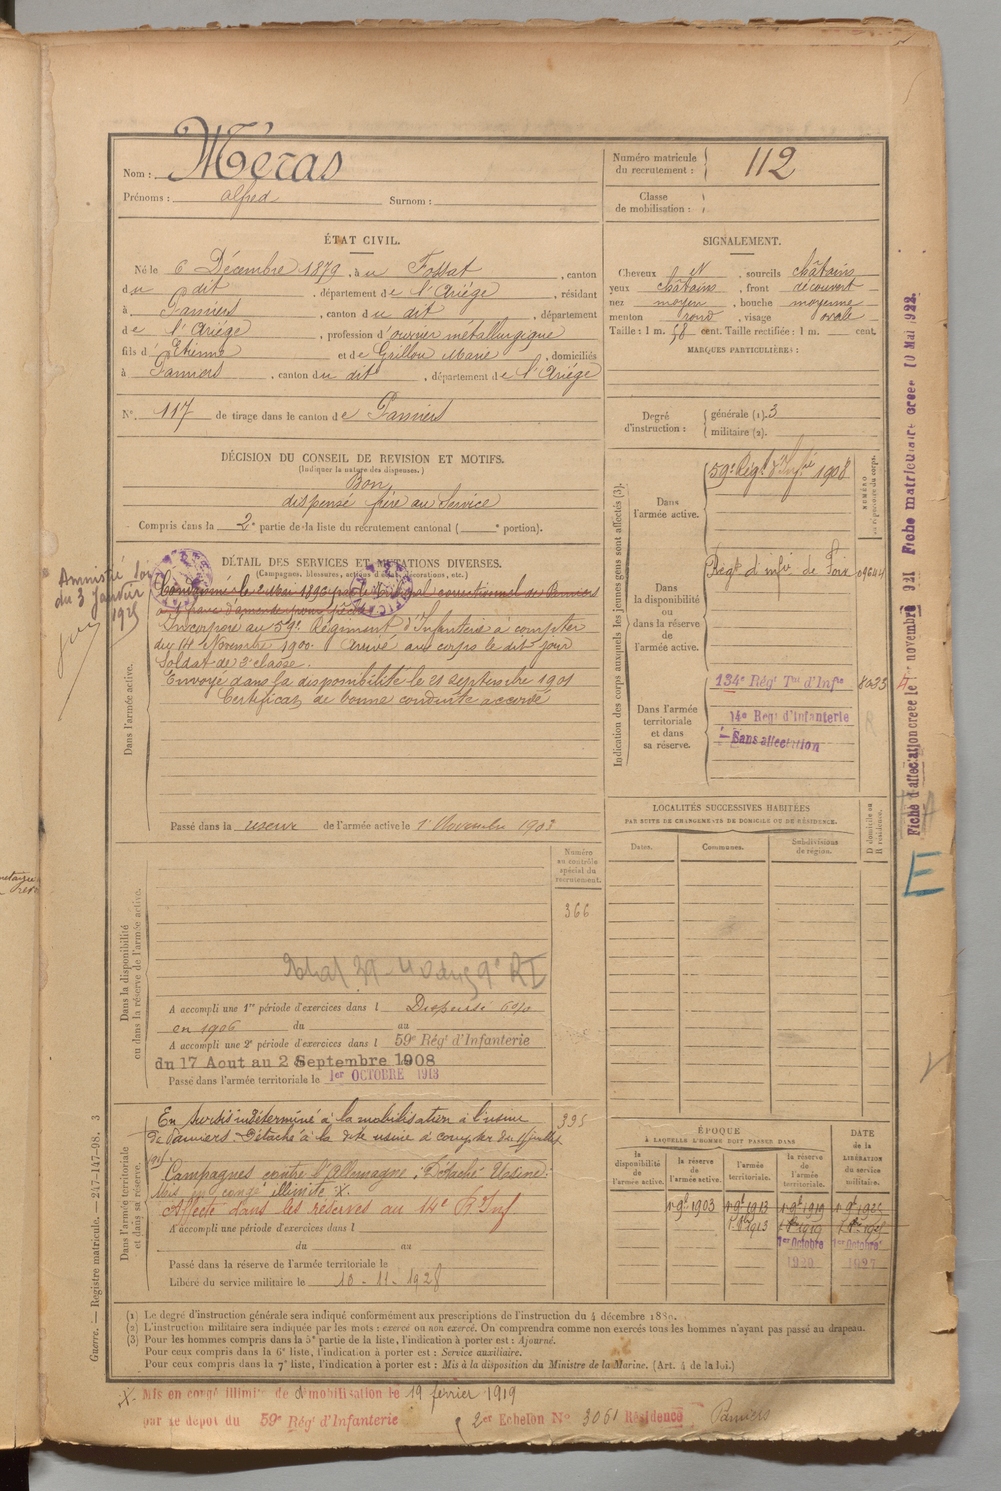 Nom : Méras
Prénoms : Alfred Surnom :
Numéro matricule du recrutement : 112
Classe de mobilisation :
ÉTAT CIVIL.
Né le 6 Décembre 1879, à u Fossat, canton
du dit, département de l'Ariége, résidant
à Pamiers, canton du dit, département
de l'Ariége, profession d'ouvrier métallurgique
fils d' Etienne et de Grillou Marie, domiciliés
à Pamiers, canton du dit, département de l'Ariége
N° 117 de tirage dans le canton de Pamiers
SIGNALEMENT.
Cheveux et, sourcils châtains
yeux châtains, front découvert
nez moyen, bouche moyenne
menton rond, visage ovale
Taille : 1 m. 58 cent. Taille rectifiée : 1 m. cent.
MARQUES PARTICULIÈRES :
Degré d'instruction : générale (1). 3
militaire (2).
DÉCISION DU CONSEIL DE REVISION ET MOTIFS.
(Indiquer la nature des dispenses.)
Bon
dispensé frère au Service
Compris dans la 2e partie de la liste du recrutement cantonal ( e portion).
DÉTAIL DES SERVICES ET MUTATIONS DIVERSES.
(Campagnes, blessures, actions d'éclat, décorations, etc.)
Amnistié Loi
du 3 Janvier
1925
Dans l'armée active.
Incorporé au 59e Régiment d'Infanterie à compter
du 14 Novembre 1900. Arrivé au corps le dit jour
Soldat de 2e classe.
Envoyé dans la disponibilité le 21 septembre 1901
Certificat de bonne conduite accordé
Passé dans la réserve de l'armée active le 1er Novembre 1903
Indication des corps auxquels les jeunes gens sont affectés (3).
NUMÉRO au répertoire du corps.
Dans l'armée active.
59e Régt d'Infie 1908
Dans la disponibilité ou dans la réserve de l'armée active.
Régt d'infie de Foix 09644
Dans l'armée territoriale et dans sa réserve.
134e Régt Tal d'Infie 8033
14e Régt d'Infanterie
Sans affectation
Fiche d'affectation créée le novembre 1921 Fiche matriculaire créée 10 Mai 1922.
E
LOCALITÉS SUCCESSIVES HABITÉES
PAR SUITE DE CHANGEMENTS DE DOMICILE OU DE RÉSIDENCE.
Dates. Communes. Subdivisions de région. D domicile ou R résidence.
Dans la disponibilité ou dans la réserve de l'armée active.
Numéro au contrôle spécial du recrutement.
366
A accompli une 1re période d'exercices dans l Dispensé 6%
en 1906 du au
A accompli une 2e période d'exercices dans l 59e Régt d'Infanterie
du 17 Aout au 2 Septembre 1908
Passé dans l'armée territoriale le 1er OCTOBRE 1913
Dans l'armée territoriale et dans sa réserve.
395
En sursis indéterminé à la mobilisation à l'usine
de Pamiers. Détaché à la dite usine à compter du 1 juillet
Campagnes contre l'Allemagne : Détaché Usine
Mis en congé illimité X.
Affecté dans les réserves au 14e R. Inf
A accompli une période d'exercices dans l
du au
Passé dans la réserve de l'armée territoriale le
Libéré du service militaire le 10 - 11 - 1928
ÉPOQUE
A LAQUELLE L'HOMME DOIT PASSER DANS
la disponibilité de l'armée active. la réserve de l'armée active. l'armée territoriale. la réserve de l'armée territoriale.
DATE de la LIBÉRATION du service militaire.
1er 9bre 1903 1er 9bre 1913 1er 9bre 1919
1er 8bre 1913
1er Octobre 1er Octobre
1920 1927
(1) Le degré d'instruction générale sera indiqué conformément aux prescriptions de l'instruction du 4 décembre 1889.
(2) L'instruction militaire sera indiquée par les mots : exercé ou non exercé. On comprendra comme non exercés tous les hommes n'ayant pas passé au drapeau.
(3) Pour les hommes compris dans la 5e partie de la liste, l'indication à porter est : Ajourné.
Pour ceux compris dans la 6e liste, l'indication à porter est : Service auxiliaire.
Pour ceux compris dans la 7e liste, l'indication à porter est : Mis à la disposition du Ministre de la Marine. (Art. 4 de la loi.)
Guerre. — Registre matricule. — 247-147-98. 3
X. Mis en congé illimité de démobilisation le 19 février 1919
par le dépôt du 59e Régt d'Infanterie 2er Echelon No 3051 Résidence Pamiers